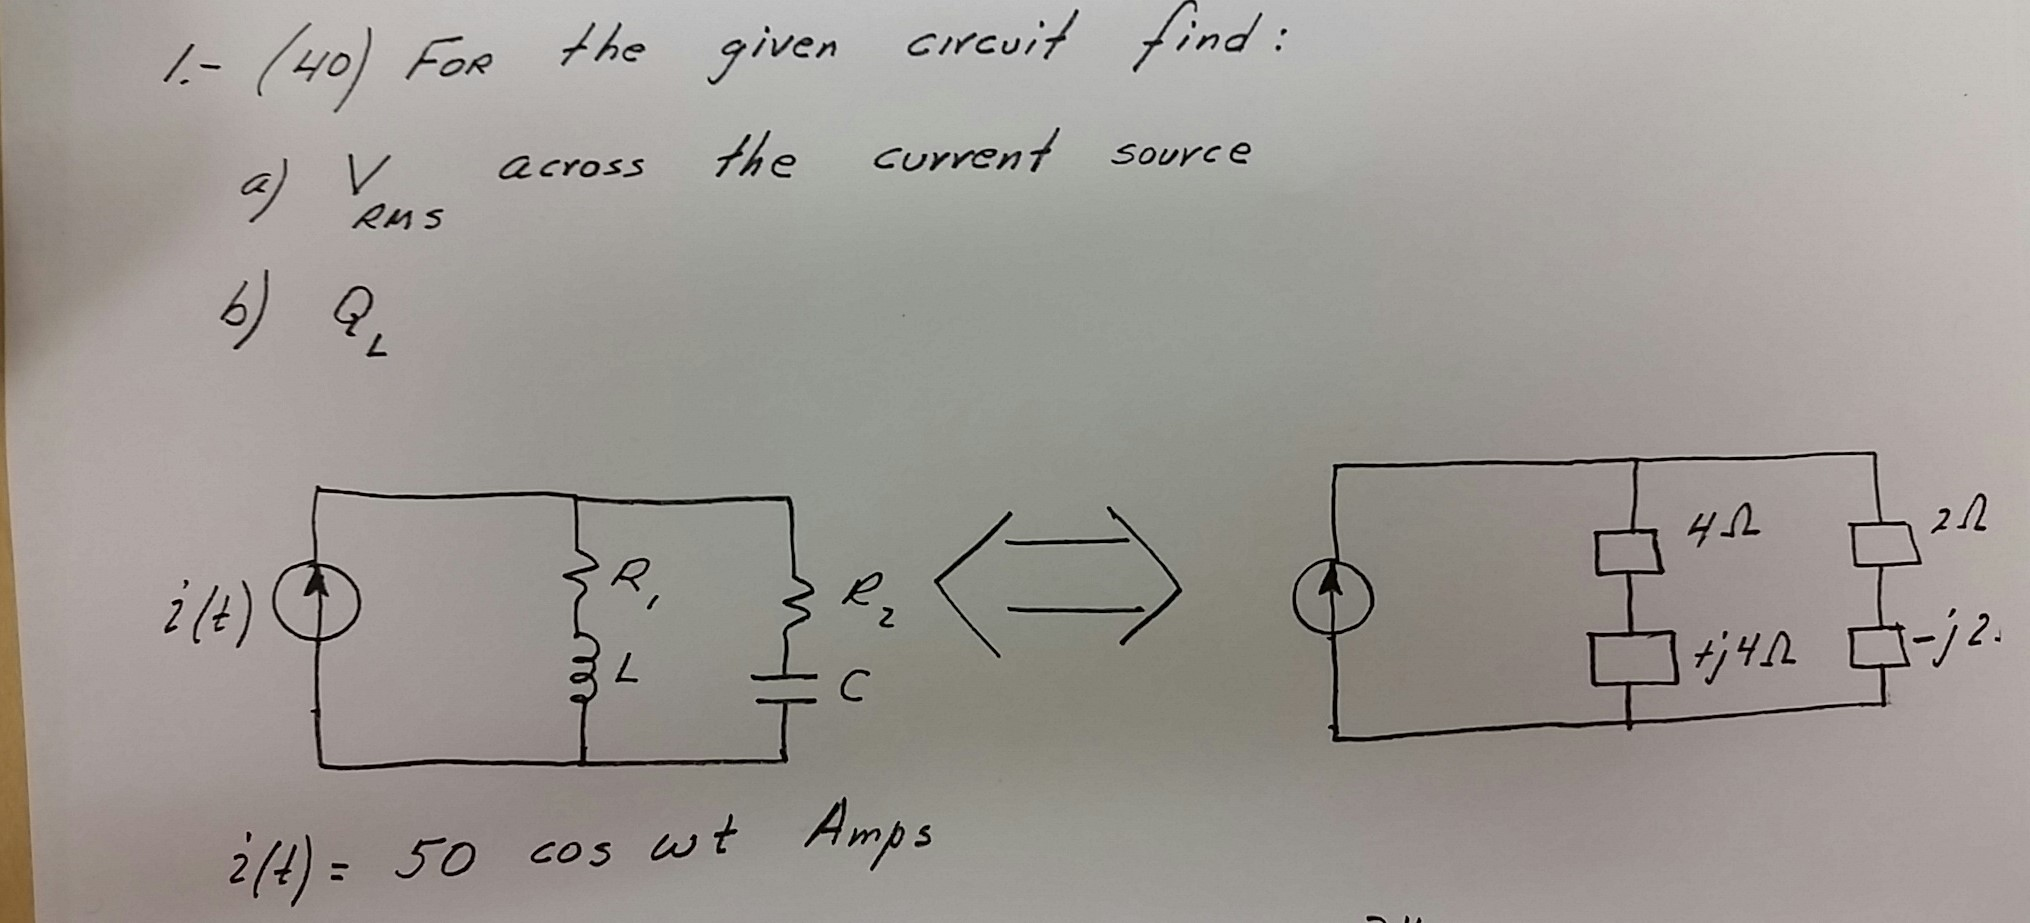 1.- (40) FOR the given circuit find:
a) V RMS across the current source
b) Q L
i(t)
R1
L
R2
C
4Ω
+j4Ω
2Ω
-j2
i(t) = 50 cos wt Amps